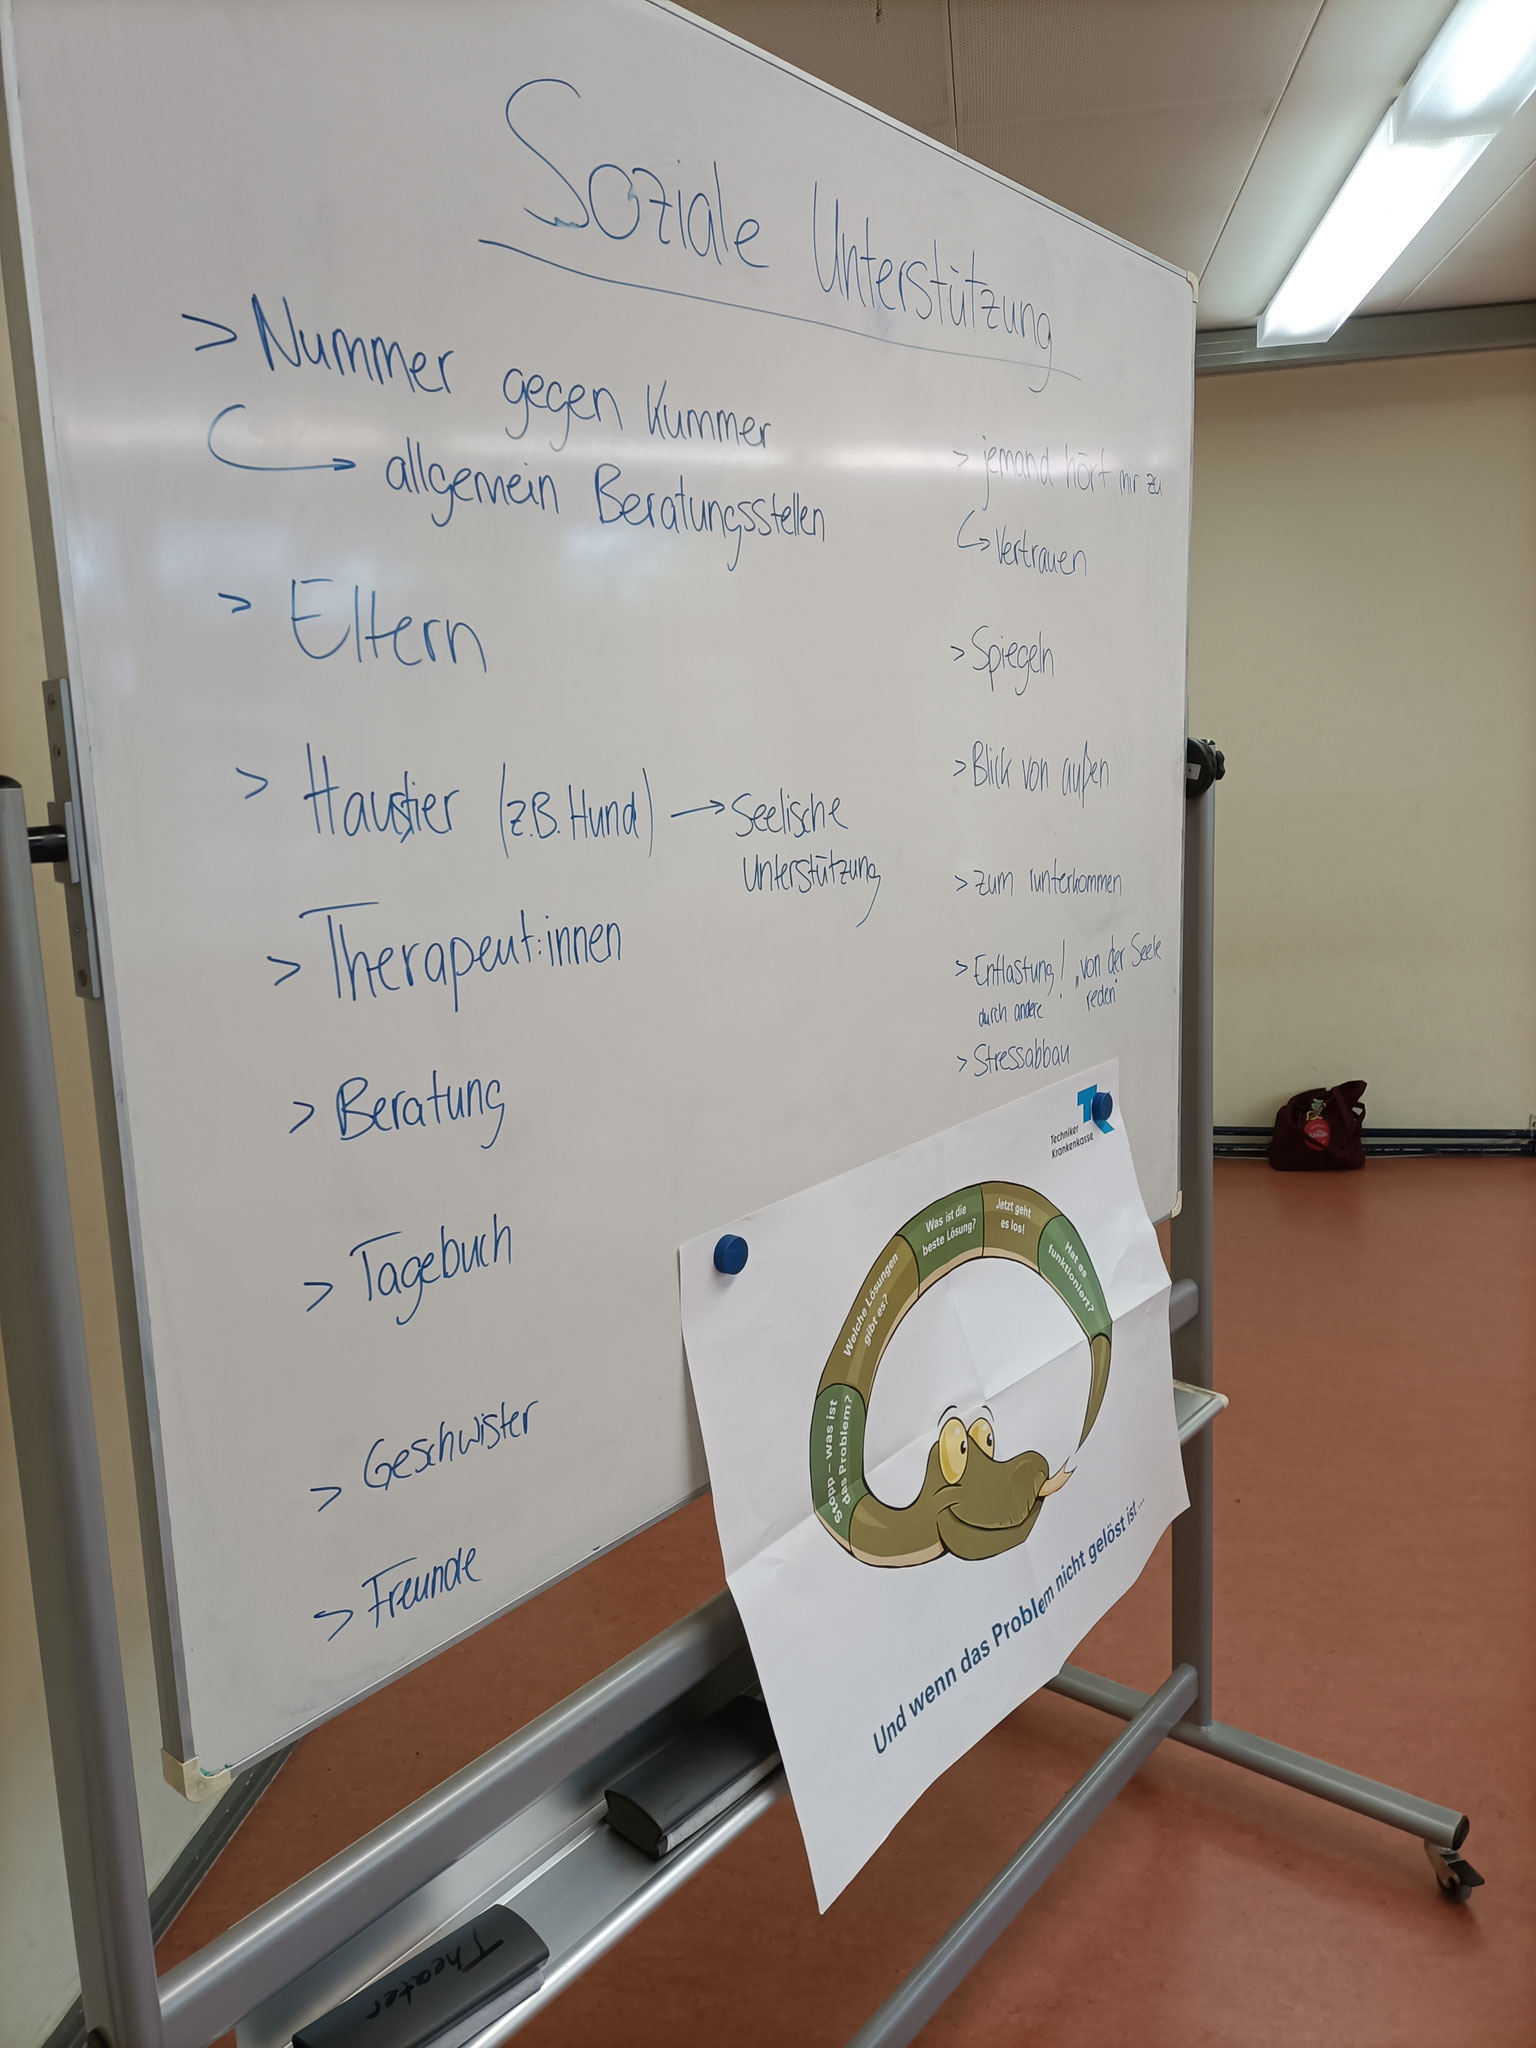 Soziale Unterstützung
> Nummer gegen Kummer
→ allgemein Beratungsstellen
> Eltern
> Haustier (z.B. Hund) → Seelische
Unterstützung
> Therapeut:innen
> Beratung
> Tagebuch
> Geschwister
> Freunde
> jemand hört mir zu
→ Vertrauen
> Spiegeln
> Blick von außen
> zum runterkommen
> Entlastung! „von der Seele
durch andere reden"
> Stressabbau
TK
Techniker
Krankenkasse
Stopp – was ist
das Problem?
Welche Lösungen
gibt es?
Was ist die
beste Lösung?
Jetzt geht
es los!
Hat es
funktioniert?
Und wenn das Problem nicht gelöst ist ...
Theater